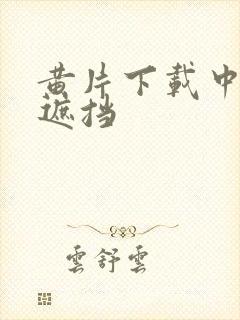 黄片下载中
遮挡
雲舒雲